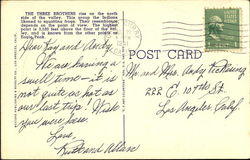 THE THREE BROTHERS rise on the north
side of the valley. This group the Indians
likened to squatting frogs. Their resemblance
depends on the point of view. The highest
point is 3,530 feet above the floor of the Val-
ley, and is known from the other points as
Eagle Peak.
POST CARD
Dear Fay and Andy,
We are having a
swell time - it is
not quite as hot as
our last trip. Wish
you were here.
Love,
Ruth and Allan
Mr. and Mrs. Andy
222 E. 107th St.
Los Angeles Calif